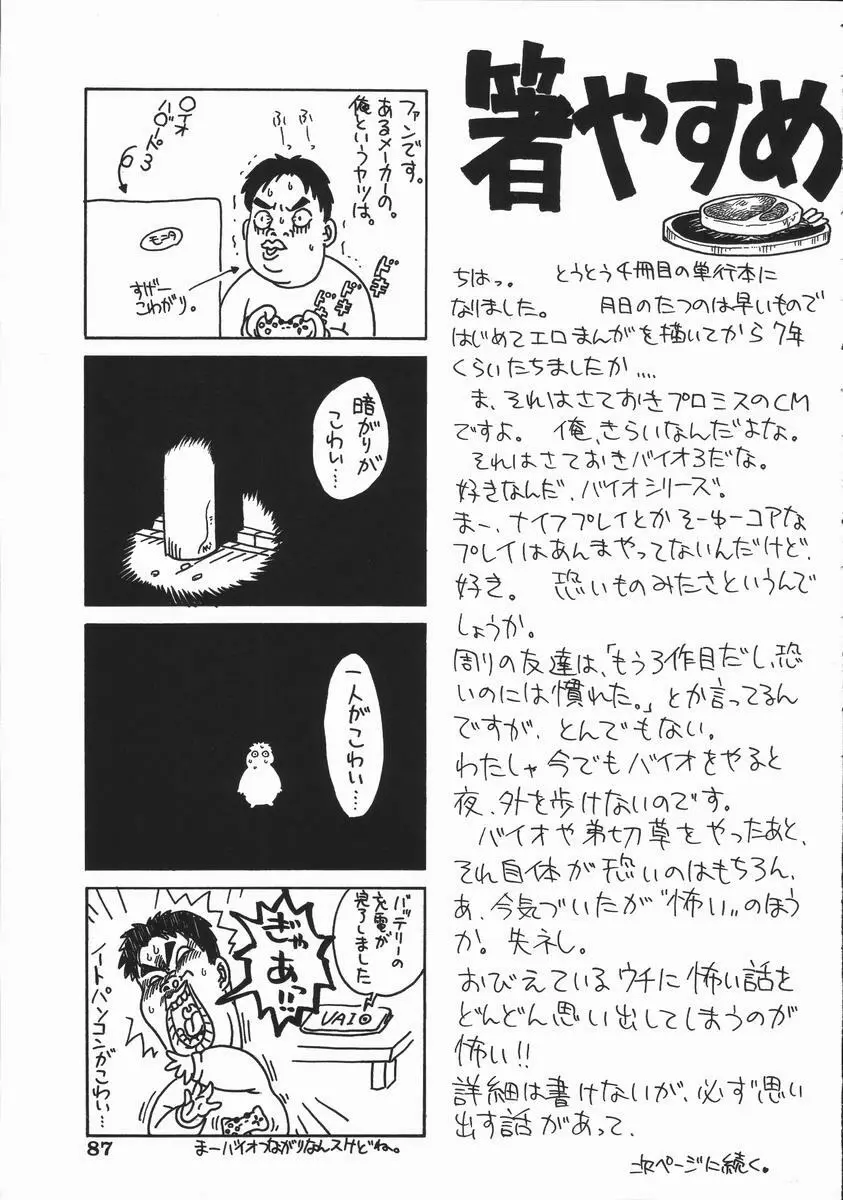 箸やすめ
ちはっ。 とうとう4冊目の単行本に
なりました。 月日のたつのは早いもので
はじめてエロまんがを描いてから7年
くらいたちましたか....
ま、それはさておきプロミスのCM
ですよ。 俺、きらいなんだよな。
それはさておきバイオ3だな。
好きなんだ、バイオシリーズ。
まー、ナイフプレイとかそーゆーコアな
プレイはあんまやってないんだけど、
好き。 恐いものみたさというんで
しょうか。
周りの友達は、「もう3作目だし、恐
いのには慣れた。」とか言ってるん
ですが、とんでもない。
わたしゃ今でもバイオをやると
夜、外を歩けないのです。
バイオや弟切草をやったあと、
それ自体が恐いのはもちろん、
あ、今気づいたが“怖い„のほう
か。失ネし。
おびえているウチに怖い話を
どんどん思い出してしまうのが
怖い!!
詳細は書けないが、必ず思い
出す話があって、
次ページに続く。
ファンです。
あるメーカーの。
俺というヤツは。
ふー
ふー
モニタ
すげー
こわがり。
ドキ
ドキ
ドキ
暗がりが
こわい…
一人がこわい…
バッテリーの
充電が
完了しました
ぎゃあっ!!
VAIO
ノートパソコンがこわい…
まーバイオつながりなんスけどね。
87